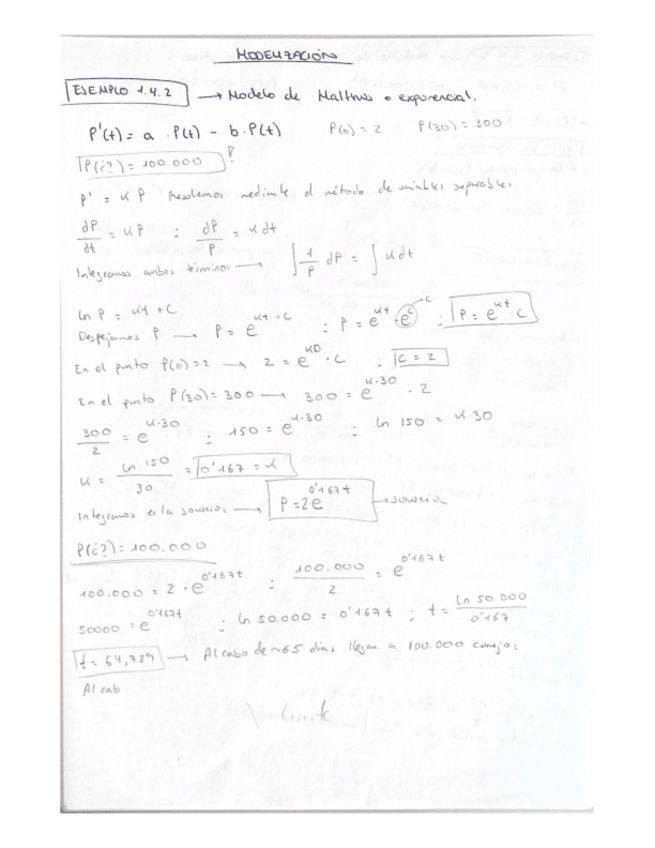 MODELIZACIÓN
EJEMPLO 1.4.2 → Modelo de Malthus o exponencial.
P'(t) = a · P(t) - b · P(t) P(0) = 2 P(30) = 300
P(¿?) = 100.000 !
P' = K P Resolemos mediante el método de variables separables.
dP/dt = K P ; dP/P = K dt
Integramos ambos términos → ∫ 1/P dP = ∫ K dt
ln P = Kt + C
Despejamos P → P = e^(Kt + C) ; P = e^(Kt) · e^C → C ; P = e^(Kt) · C
En el punto P(0) = 2 → 2 = e^(K0) · C ; C = 2
En el punto P(30) = 300 → 300 = e^(K·30) · 2
300/2 = e^(K·30) ; 150 = e^(K·30) ; ln 150 = K·30
K = ln 150/30 = 0'167 = K
Integramos en la solución → P = 2·e^(0'167t) → solución
P(¿?) = 100.000
100.000 = 2 · e^(0'167t) ; 100.000/2 = e^(0'167t)
50000 = e^(0'167t) ; ln 50.000 = 0'167t ; t = ln 50.000/0'167
t = 64,789 → Al cabo de ~65 días llegan a 100.000 conejos
Al cab